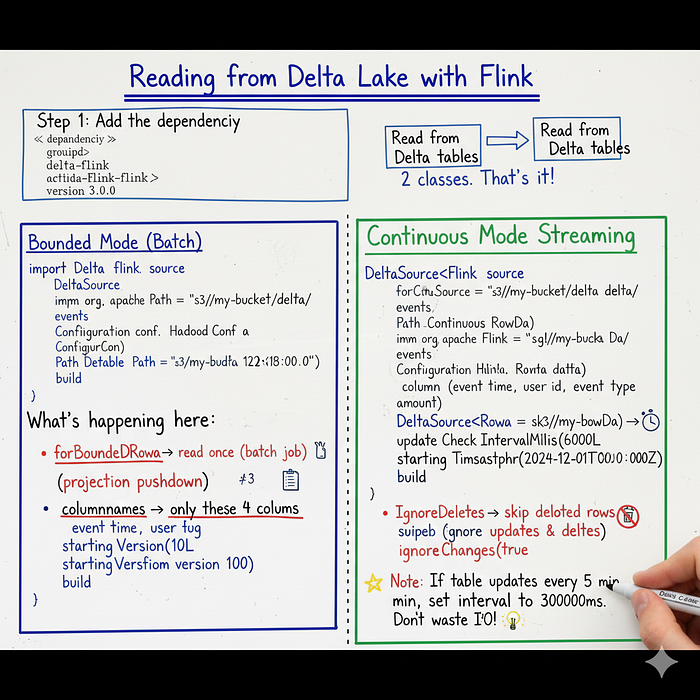 Reading from Delta Lake with Flink
Step 1: Add the dependenciy
<< depandenciy >>
grouipd>
delta-flink
acttida-Flink-flink>
version 3.0.0
Read from
Delta tables
Read from
Delta tables
2 classes. That's it!
Bounded Mode (Batch)
import Delta flink source
DeltaSource
impm org, apache Path = "s3//my-bucket/delta/
events
Configuration conf. Hadood Conf a
ConfigurCon)
Path Detable Path = "s3/my-budła 122:18:00.0")
build
)
What's happening here:
• forBoundeDRowa→ read once (batch job)
(projection pushdown) #3
• columnnames → only these 4 colums
event time, user fug
starting Version(10L
starting Versfiom version 100)
build
)
Continuous Mode Streaming
DeltaSource<Flink source
Source = "s3//my-bucket/delta delta/
events.
Path .Continuous RowDa)
imm org.apache Flink = "sgl//my-bucka Da/
events
Confiiguration datta)
column (event time, user id, event type
amount)
DeltaSource<Rowa = sk3//my-bowDa) →
update Check IntervalMIlis(6000L
starting Timsastphr(2024-12-01T00J0:000Z)
build
)
• IgnoreDeletes → skip deloted rows
suipeb (gnore updates & deltes)
ignore Changes(true
Note: If table updates every 5 min
min, set interval to 300000ms.
Don't waste I'O!